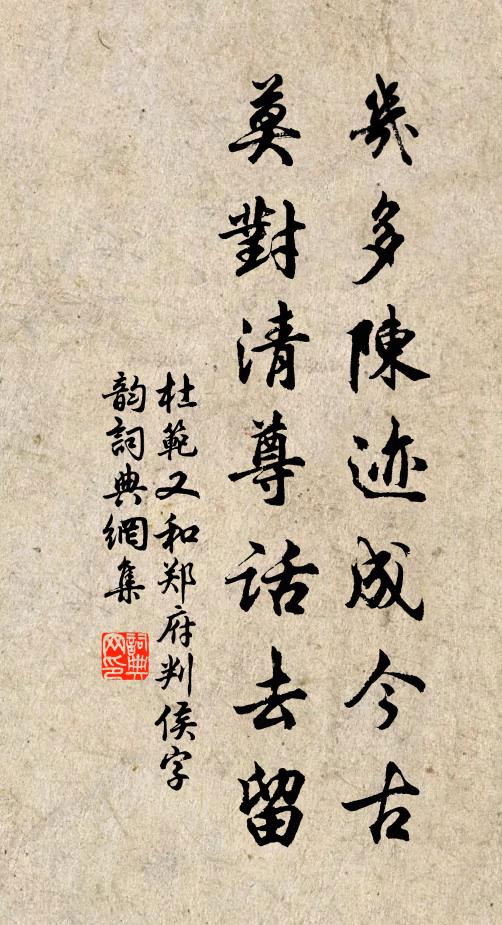 幾多陳迹成今古
莫對清尊話去留
杜範又和郑府判侯字
韵詞典網集
詞典网印